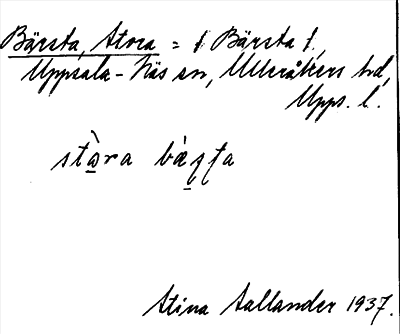 Bärsta, Stora = f Bärsta f,
Uppsala-Näs sn, Ulleråkers hd,
Upps. l.
stara bàsta
Stina Sallander 1937.